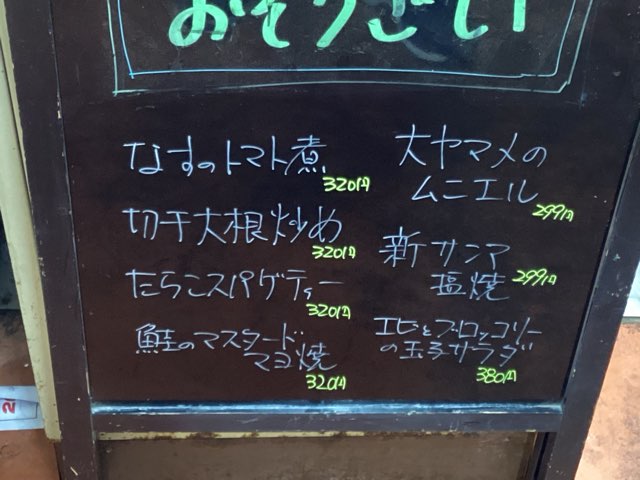 おそうざい
なすのトマト煮
320円
切干大根炒め
320円
たらこスパゲティー
320円
鮭のマスタード
マヨ焼
320円
大ヤマメの
ムニエル
299円
新サンマ
塩焼
299円
エビとブロッコリー
の玉子サラダ
380円